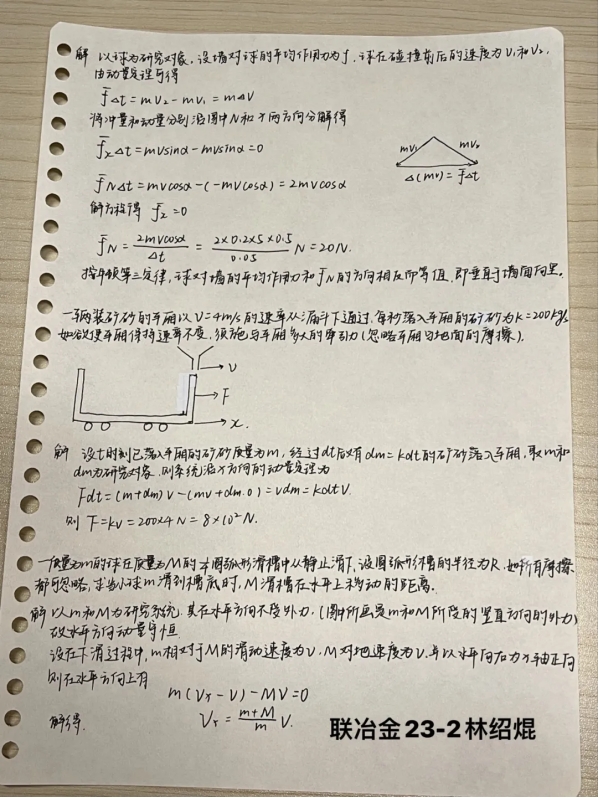 解 以球为研究对象,设墙对球的平均作用力为f,球在碰撞前后的速度为V₁和V₂,
由动量定理可得
f̄Δt=mV₂-mV₁=mΔV
将冲量和动量分别沿图中N和x两方向分解得
f̄ₓΔt=mvsinα-mvsinα=0
mV₁ mV₂
Δ(mv)=f̄Δt
f̄NΔt=mvcosα-(-mvcosα)=2mvcosα
解方程得 f̄ₓ=0
f̄N=2mvcosα/Δt=2×0.2×5×0.5/0.05 N=20N.
按牛顿第三定律,球对墙的平均作用力和f̄N的方向相反而等值,即垂直于墙面向里.
一辆装矿砂的车厢以V=4m/s的速率从漏斗下通过,每秒落入车厢的矿砂为k=200kg/s,
如欲使车厢保持速率不变,须施与车厢多大的牵引力(忽略车厢与地面的摩擦).
v
F
x.
解 设t时刻已落入车厢的矿砂质量为m,经过dt后又有dm=kdt的矿砂落入车厢,取m和
dm为研究对象,则系统沿x方向的动量定理为
Fdt=(m+dm)v-(mv+dm·0)=vdm=kdtv.
则 F=kv=200×4N=8×10²N.
一质量为m的球在质量为M的1/4圆弧形滑槽中从静止滑下,设圆弧形槽的半径为R,如所有摩擦
都可忽略,求当小球m滑到槽底时,M滑槽在水平上移动的距离.
解 以m和M为研究系统,其在水平方向不受外力,(图中所画是m和M所受的竖直方向的外力)
故水平方向动量守恒
设在下滑过程中,m相对于M的滑动速度为v,M对地速度为V,并以水平向右为x轴正向
则在水平方向上有
m(Vₓ-V)-MV=0
解得. Vₓ=m+M/m V.
联冶金23-2林绍焜